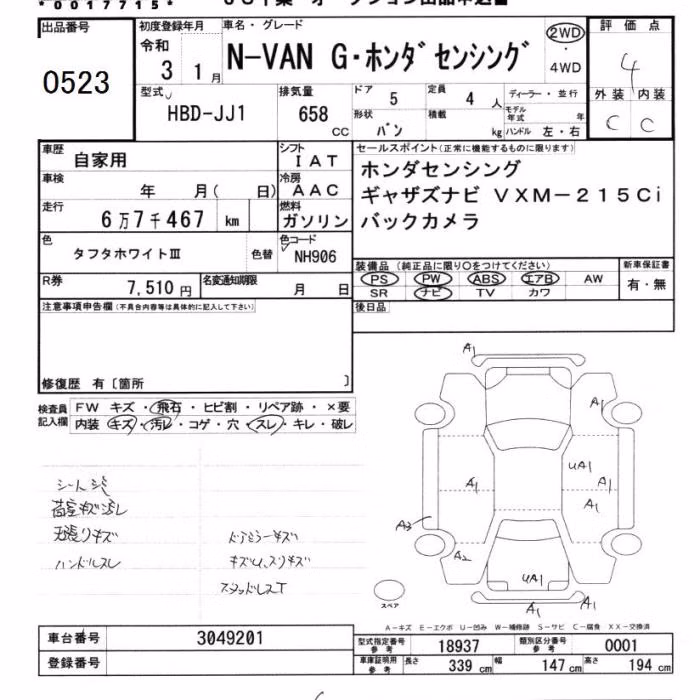 *0017715*
出品番号
0523
初度登録年月
令和
3 1月
車名・グレード
N-VAN G・ホンダセンシング
2WD
・
4WD
評価点
4
外装 内装
C C
型式
HBD-JJ1
排気量
658 CC
ドア 5
定員 4 人
形状 バン
積載 kg
ディーラー・並行
モデル年式 年
ハンドル 左・右
車歴 自家用
車検 年 月( 日)
走行 6万7千467 km
シフト IAT
冷房 AAC
燃料 ガソリン
セールスポイント(正常に機能するものに限ります)
ホンダセンシング
ギャザズナビ VXM-215Ci
バックカメラ
色 タフタホワイトⅢ 色替
色コード NH906
R券 7,510円
名変通知期限 月 日
装備品(純正品に限り○をつけてください)
PS PW ABS エアB AW
SR ナビ TV カワ
新車保証書
有・無
後日品
注意事項申告欄(不具合内容等は具体的に記入して下さい)
修復歴 有〔箇所 〕
検査員記入欄
FW キズ・飛石・ヒビ割・リペア跡・×要
内装 キズ・汚レ・コゲ・穴・スレ・キレ・破レ
シート
荷室キズ
天張りキズ
ハンドルスレ
ドアミラーキズ
キズ
スタッドレスT
A1
A1
UA1
A1
A1
A1
A3
A2
UA1
A1
A1
スペア
A-キズ E-エクボ U-凹み W-補修跡 S-サビ C-腐食 XX-交換済
車台番号 3049201
登録番号
型式指定番号 参考 18937
類別区分番号 参考 0001
車庫証明用 参考 長さ 339 cm 幅 147 cm 高さ 194 cm